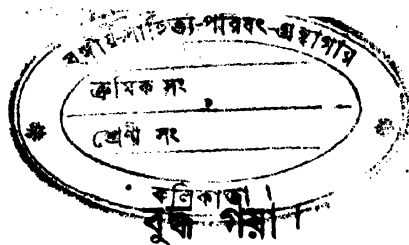 বঙ্গীয়-সাহিত্য-পরিষৎ-গ্রন্থাগার
ক্রমিক সং
শ্রেণী সং
কলিকাতা।
বুদ্ধ গয়া।